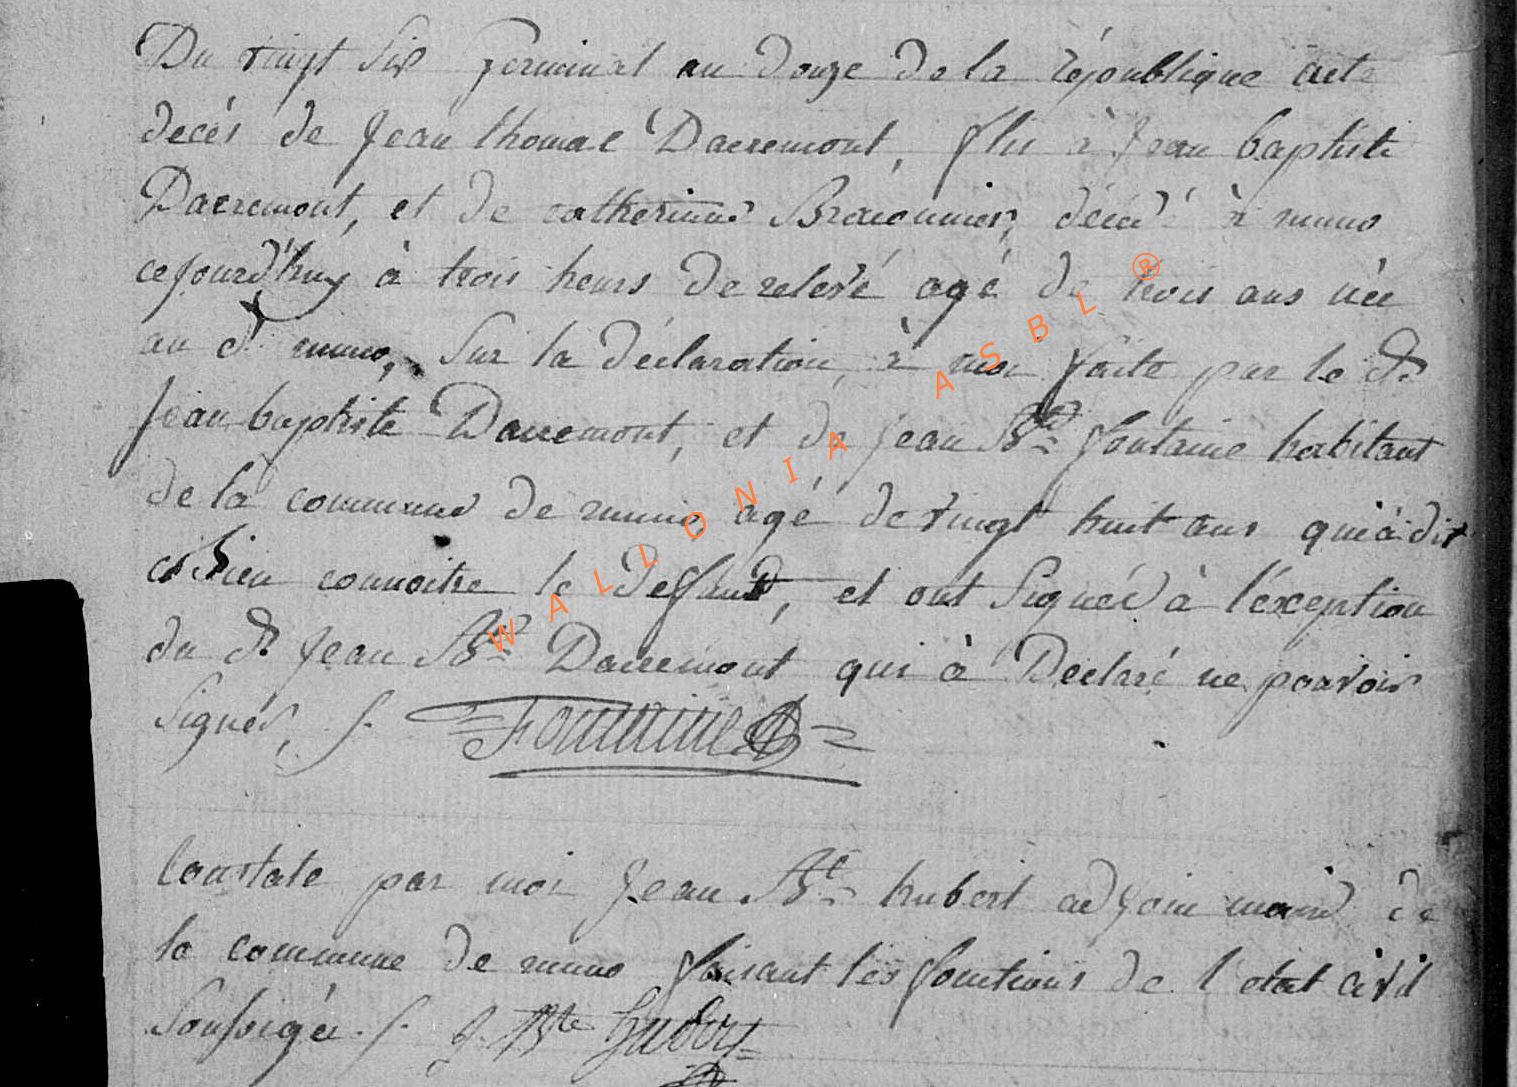 Du vingt Six Germinal an douze de la république acte
decés de Jean thomas Dacremont, fils à Jean baptiste
Dacremont, et de catherinne décédé à muno
cejourd'huy à trois heurs de relevé agé de trois ans née
au dt muno, Sur la déclaration, à moi faite par le dt
Jean baptiste Dacremont, et de jean Bte fontaine habitant
de la commune de muno agé de vingt huit ans qui à dit
bien connoitre le deffunt, et ont Signés à l'éxception
du dt Jean Bte Dacremont qui à Declaré ne pouvoir
Signér, /.
Fontaine
Constate par moi Jean Bte hubert adjoin maire de
la commune de muno faisant les fonctions de l'etat civil
Soussigée ./. J. Bte Hubert
WALLONIA ASBL ®